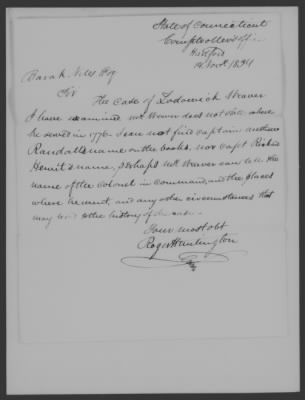 State of Connecticut
Comptrollers office
Hartford
Novr 1834
Niles Esq
Sir The Case of Lodowick Weaver
I have examined Mr Weaver does not state where
he served in 1776. I can not find captain
Randalls name on the books, nor Capt
Hewit's name, perhaps Mr Weaver can tell the
name of the Colonel in command, and the places
where he went, and any other circumstances that
may lead to the history of the case.
Your most obt
Roger Huntington